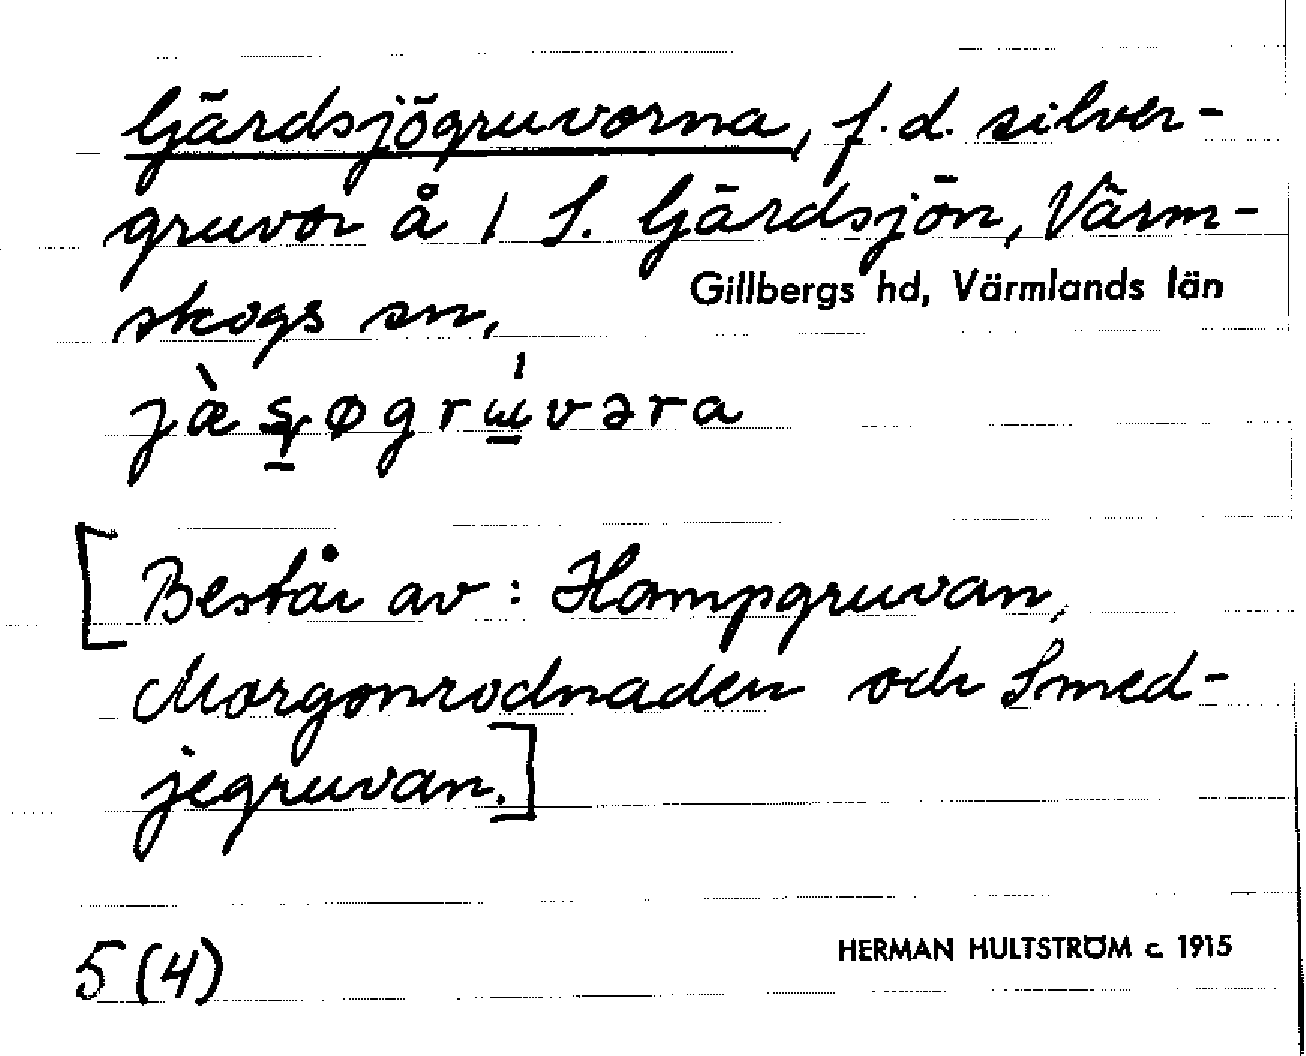 Gärdsjögruvorna, f.d. silver-
gruvor å 1 S. Gärdsjön, Värm-
skogs sn,
Gillbergs hd, Värmlands län
jæ̀ʂøgrɯ́vəra
[Består av: Hampgruvan,
Morgonrodnaden och Smed-
jegruvan.]
5 (4)
HERMAN HULTSTRÖM c. 1915